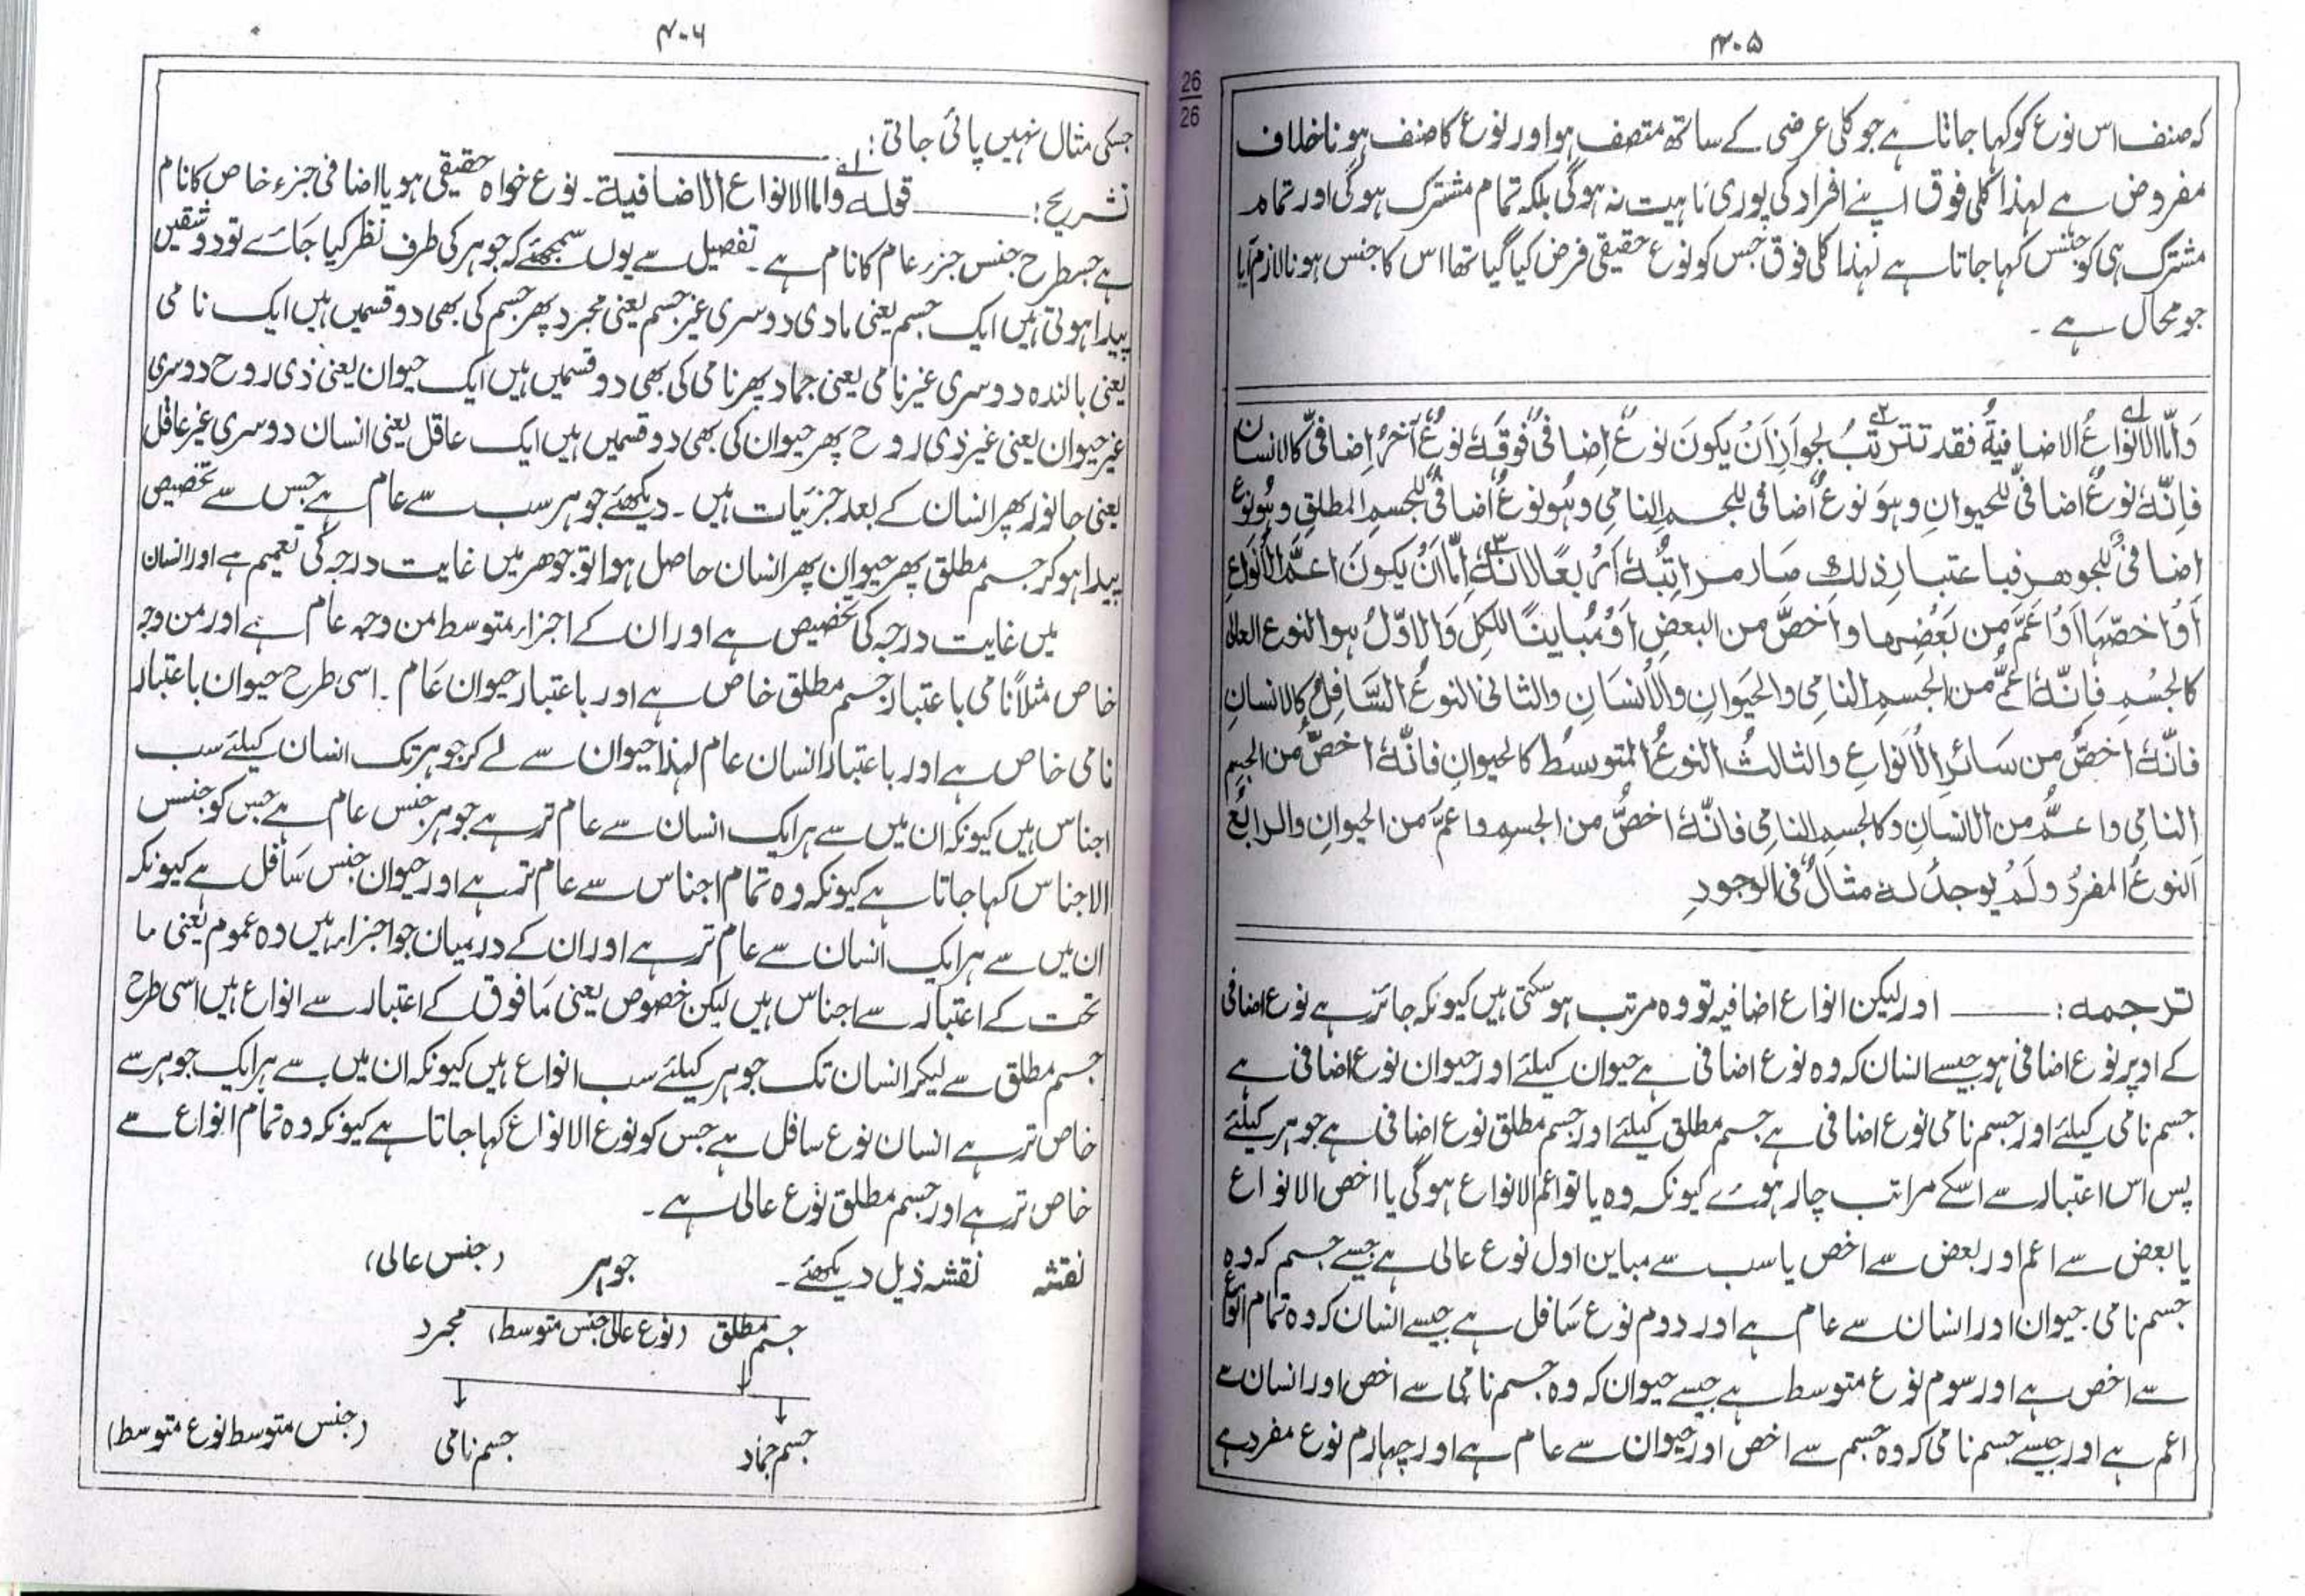 ۴۰۵
کہ صنف اس نوع کو کہا جاتا ہے جو کلی عرضی کے ساتھ متصف ہو اور نوع کا صنف ہونا خلاف
مفروض ہے لہذا کلی فوق اپنے افراد کی پوری ماہیت نہ ہوگی بلکہ تمام مشترک ہوگی اور تمام
مشترک ہی کو جنس کہا جاتا ہے لہذا کلی فوق جس کو نوع حقیقی فرض کیا گیا تھا اس کا جنس ہونا لازم آیا
جو محال ہے ۔
وَاَمَّا الاَنْوَاعُ الاضافیةُ فقد تترتبُ لجوازِ اَنْ یکونَ نوعٌ اِضافیٌّ فوقَهٗ نوعٌ آخرُ اِضافیٌّ کالانسان
فاِنَّهٗ نوعٌ اضافیٌّ للحیوانِ وہوَ نوعٌ اضافیٌ للجسم النامی وہُو نوعٌ اضافیٌ للجسمِ المطلقِ وہُو نوعٌ
اضافیٌ للجوهرِ فباعتبارِ ذلك صَار مراتبُهٗ اَرْبعًا لانهٗ اِمَّا اَنْ یکونَ اعمَّ الاَنْواعِ
اَوْ اخصَّهَا اَوْ اَعَمَّ من بَعْضِها واَخصَّ من البعضِ اَوْ مُباینًا للکلِ وَالاوّلُ ہوالنوع العالی
کالجسْمِ فاِنَّهٗ اَعَمُّ من الجسمِ النامی والحیَوانِ والاِنسَانِ والثانی النوعُ السَّافِلُ کالانسانِ
فانَّهٗ اخصُّ من سَائرِ الاَنْواعِ والثالثُ النوعُ المتوسطُ کالحیوانِ فانَّهٗ اخصُّ من الجسمِ
النامی واعمُّ من الانسانِ وکالجسمِ النامی فانَّهٗ اخصُّ من الجسمِ واعمُّ من الحیوانِ والرابعُ
اَلنوعُ المفردُ ولَمْ یوجدْ لهٗ مثالٌ فی الوجودِ
ترجمہ: ــــــ اور لیکن انواع اضافیہ تو وہ مرتب ہو سکتی ہیں کیونکہ جائز ہے نوع اضافی
کے اوپر نوع اضافی ہو جیسے انسان کہ وہ نوع اضافی ہے حیوان کیلئے اور حیوان نوع اضافی ہے
جسم نامی کیلئے اور جسم نامی نوع اضافی ہے جسم مطلق کیلئے اور جسم مطلق نوع اضافی ہے جوہر کیلئے
پس اس اعتبار سے اسکے مراتب چار ہوئے کیونکہ وہ یا تو اعم الانواع ہوگی یا اخص الانواع
یا بعض سے اعم اور بعض سے اخص یا سب سے مباین اول نوع عالی ہے جیسے جسم کہ وہ
جسم نامی، حیوان اور انسان سے عام ہے اور دوم نوع سَافل ہے جیسے انسان کہ وہ تمام انواع
سے اخص ہے اور سوم نوع متوسط ہے جیسے حیوان کہ وہ جسم نامی سے اخص اور انسان سے
اعم ہے اور جیسے جسم نامی کہ وہ جسم سے اخص اور حیوان سے عام ہے اور چہارم نوع مفرد ہے
26
26
۴۰۶
جسکی مثال نہیں پائی جاتی :
تشریح : ــــــ قولہ واما الانواع الاضافیة۔ نوع خواہ حقیقی ہو یا اضافی جزء خاص کا نام
ہے جسطرح جنس جزر عام کا نام ہے۔ تفصیل سے یوں سمجھئے کہ جوہر کی طرف نظر کیا جائے تو دو شقیں
پیدا ہوتی ہیں ایک جسم یعنی مادی دوسری غیر جسم یعنی مجرد پھر جسم کی بھی دو قسمیں ہیں ایک نامی
یعنی بالندہ دوسری غیر نامی یعنی جماد پھر نامی کی بھی دو قسمیں ہیں ایک حیوان یعنی ذی روح دوسری
غیر حیوان یعنی غیر ذی روح پھر حیوان کی بھی دو قسمیں ہیں ایک عاقل یعنی انسان دوسری غیر عاقل
یعنی جانور پھر انسان کے بعد جزئیات ہیں ۔ دیکھئے جوہر سب سے عام ہے جس سے تخصیص
پیدا ہو کر جسم مطلق پھر حیوان پھر انسان حاصل ہوا تو جوہر میں غایت درجہ کی تعمیم ہے اور انسان
میں غایت درجہ کی تخصیص ہے اور ان کے اجزار متوسط من وجہ عام ہے اور من وجہ
خاص مثلاً نامی باعتبار جسم مطلق خاص ہے اور باعتبار حیوان عَام ۔ اسی طرح حیوان باعتبار
نامی خاص ہے اور باعتبار انسان عام لہذا حیوان سے لے کر جوہر تک انسان کیلئے سب
اجناس ہیں کیونکہ ان میں سے ہر ایک انسان سے عام تر ہے جوہر جنس عام ہے جس کو جنس
الاجناس کہا جاتا ہے کیونکہ وہ تمام اجناس سے عام تر ہے اور حیوان جنس سَافل ہے کیونکہ
ان میں سے ہر ایک انسان سے عام تر ہے اور ان کے درمیان جو اجزار ہیں وہ عموم یعنی ما
تحت کے اعتبار سے اجناس ہیں لیکن خصوص یعنی مَا فوق کے اعتبار سے انواع ہیں اسی طرح
جسم مطلق سے لیکر انسان تک جوہر کیلئے سب انواع ہیں کیونکہ ان میں سے ہر ایک جوہر سے
خاص تر ہے انسان نوع سافل ہے جس کو نوع الانواع کہا جاتا ہے کیونکہ وہ تمام انواع سے
خاص تر ہے اور جسم مطلق نوع عالی ہے ۔
نقشہ نقشہ ذیل دیکھئے ۔ جوہر (جنس عالی)
جسم مطلق (نوع عالی جنس متوسط) مجرد
جسم جماد جسم نامی (جنس متوسط نوع متوسط)